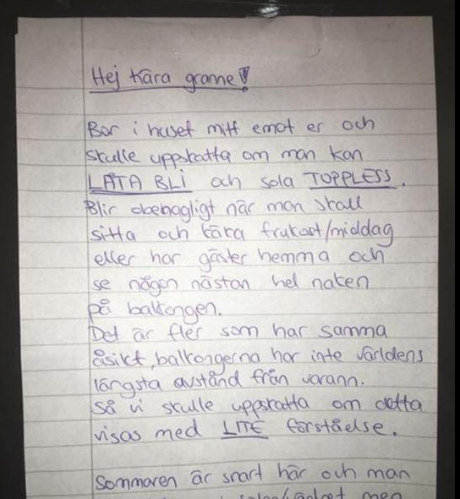 Hej kära granne!
Bor i huset mitt emot er och
skulle uppskatta om man kan
LÅTA BLI och sola TOPPLESS.
Blir obehagligt när man skall
sitta och käka frukost/middag
eller har gäster hemma och
se någon nästan hel naken
på balkongen.
Det är fler som har samma
åsikt, balkongerna har inte världens
längsta avstånd från varann.
Så vi skulle uppskatta om detta
visas med LITE förståelse.
Sommaren är snart här och man
men